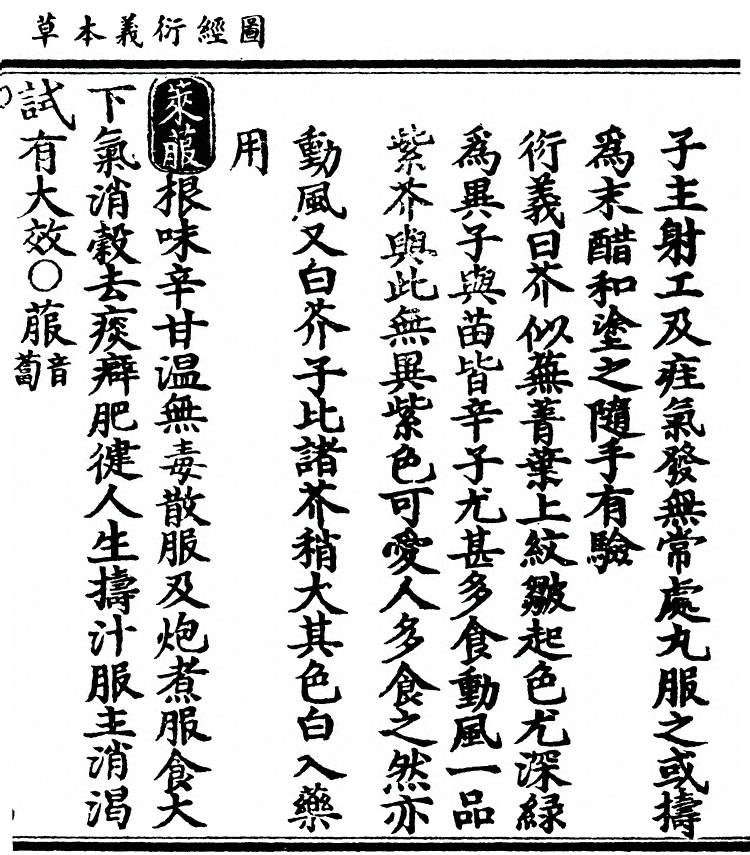 圖經衍義本草
子主射工及疰氣發無常處丸服之或擣
為末醋和塗之隨手有驗
衍義曰芥似蕪菁葉上紋皺起色尤深綠
為異子與苗皆辛子尤甚多食動風一品
紫芥與此無異紫色可愛人多食之然亦
動風又白芥子比諸芥稍大其色白入藥
用
萊菔根味辛甘温無毒散服及炮煮服食大
下氣消穀去痰癖肥健人生擣汁服主消渴
試有大效○菔音蔔